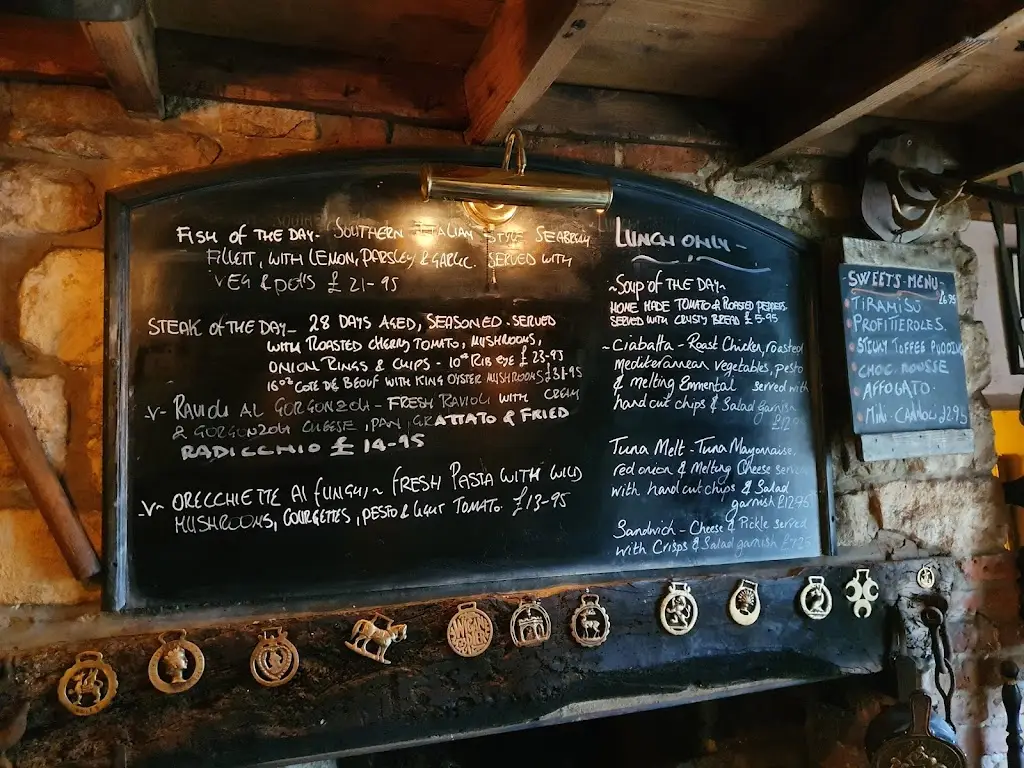 FISH OF THE DAY- SOUTHERN ITALIAN STYLE SEABREAM
FILLETT, WITH LEMON, PARSLEY & GARLIC. SERVED WITH
VEG & POTS £21-95
STEAK OF THE DAY- 28 DAYS AGED, SEASONED. SERVED
WITH ROASTED CHERRY TOMATO, MUSHROOMS,
ONION RINGS & CHIPS - 10oz RIB EYE £23-95
16oz COTE DE BEUF WITH KING OYSTER MUSHROOMS £31-95
-V- RAVIOLI AL GORGONZOLA - FRESH RAVIOLI WITH CREAM
& GORGONZOLA CHEESE, PAN GRATTATO & FRIED
RADICCHIO £14-95
-V- ORECCHIETTE AI FUNGHI ~ FRESH PASTA WITH WILD
MUSHROOMS, COURGETTES, PESTO & LIGHT TOMATO. £13-95
LUNCH ONLY -
~SOUP OF THE DAY-
HOME MADE TOMATO & ROASTED PEPPERS
SERVED WITH CRUSTY BREAD £5-95
~Ciabatta - Roast Chicken, roasted
Mediterranean vegetables, pesto
& melting Emmental served with
hand cut chips & Salad garnish
Tuna Melt - Tuna Mayonnaise,
red onion & Melting Cheese served
with hand cut chips & Salad
garnish £12-95
Sandwich - Cheese & Pickle served
with Crisps & Salad garnish
-SWEETS MENU-
£6.95
TIRAMISU
PROFITIEROLES.
STICKY TOFFEE PUDDING
CHOC. MOUSSE
AFFOGATO.
MINI CANNOLI £2.95